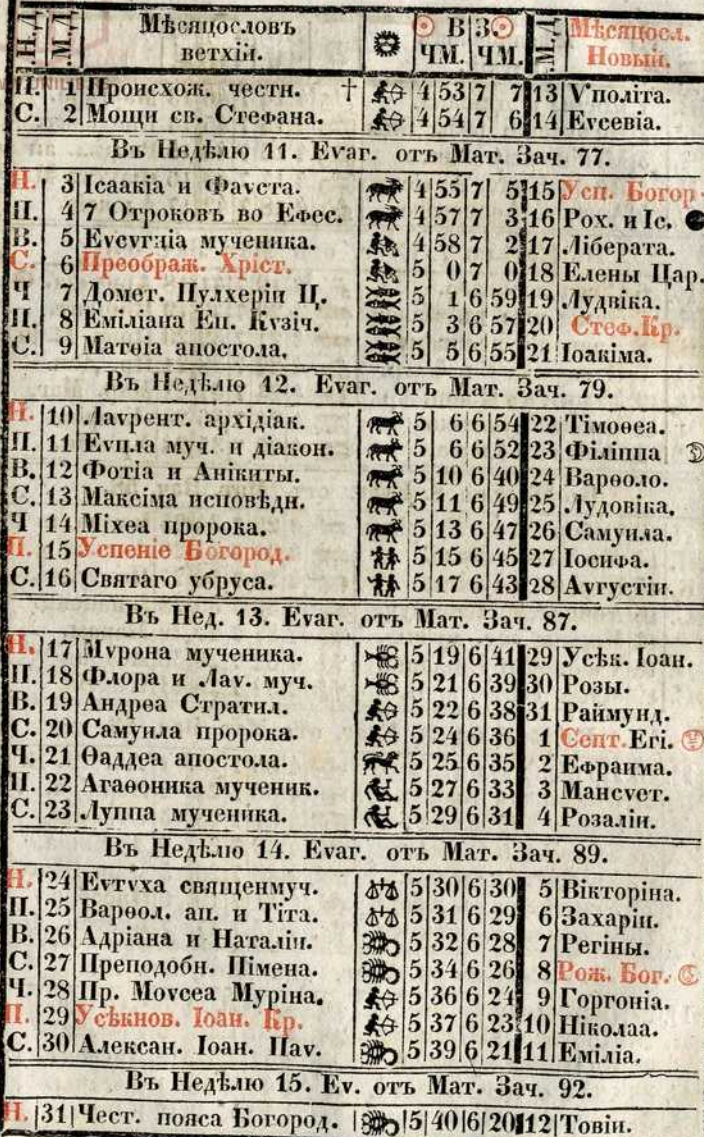 Н.Д. М.Д. Мѣсяцословъ ветхій. В ЧМ. З. ЧМ. М.Д. Мѣсяцосл. Новый.
П. 1 Происхож. честн. † 4 53 7 7 13 Ѵполіта.
С. 2 Мощи св. Стефана. 4 54 7 6 14 Еѵсевіа.
Въ Недѣлю 11. Еѵаг. отъ Мат. Зач. 77.
Н. 3 Ісаакіа и Фаѵста. 4 55 7 5 15 Усп. Богор.
П. 4 7 Отроковъ во Ефес. 4 57 7 3 16 Рох. и Іс.
В. 5 Еѵсѵгніа мученика. 4 58 7 2 17 Ліберата.
С. 6 Преображ. Хріст. 5 0 7 0 18 Елены Цар.
Ч 7 Домет. Пулхеріи Ц. 5 1 6 59 19 Лудвіка.
П. 8 Еміліана Еп. Кѵзіч. 5 3 6 57 20 Стеф. Кр.
С. 9 Матѳіа апостола. 5 5 6 55 21 Іоакіма.
Въ Недѣлю 12. Еѵаг. отъ Мат. Зач. 79.
Н. 10 Лаѵрент. архідіак. 5 6 6 54 22 Тімоѳеа.
П. 11 Еѵпла муч. и діакон. 5 6 6 52 23 Філіппа
В. 12 Фотіа и Анікиты. 5 10 6 40 24 Варѳоло.
С. 13 Максіма исповѣдн. 5 11 6 49 25 Лудовіка.
Ч 14 Міхеа пророка. 5 13 6 47 26 Самуила.
П. 15 Успеніе Богород. 5 15 6 45 27 Іосифа.
С. 16 Святаго убруса. 5 17 6 43 28 Аѵгустін.
Въ Нед. 13. Еѵаг. отъ Мат. Зач. 87.
Н. 17 Мѵрона мученика. 5 19 6 41 29 Усѣк. Іоан.
П. 18 Флора и Лаѵ. муч. 5 21 6 39 30 Розы.
В. 19 Андреа Стратил. 5 22 6 38 31 Раймунд.
С. 20 Самуила пророка. 5 24 6 36 1 Септ. Егі.
Ч. 21 Ѳаддеа апостола. 5 25 6 35 2 Ефраима.
П. 22 Агаѳоника мученик. 5 27 6 33 3 Мансѵет.
С. 23 Луппа мученика. 5 29 6 31 4 Розаліи.
Въ Недѣлю 14. Еѵаг. отъ Мат. Зач. 89.
Н. 24 Еѵтѵха священмуч. 5 30 6 30 5 Вікторіна.
П. 25 Варѳол. ап. и Тіта. 5 31 6 29 6 Захаріи.
В. 26 Адріана и Наталіи. 5 32 6 28 7 Регіны.
С. 27 Преподобн. Пімена. 5 34 6 26 8 Рож. Бог.
Ч. 28 Пр. Моѵсеа Муріна. 5 36 6 24 9 Горгоніа.
П. 29 Усѣкнов. Іоан. Кр. 5 37 6 23 10 Ніколаа.
С. 30 Алексан. Іоан. Пав. 5 39 6 21 11 Еміліа.
Въ Недѣлю 15. Еѵ. отъ Мат. Зач. 92.
Н. 31 Чест. пояса Богород. 5 40 6 20 12 Товіи.